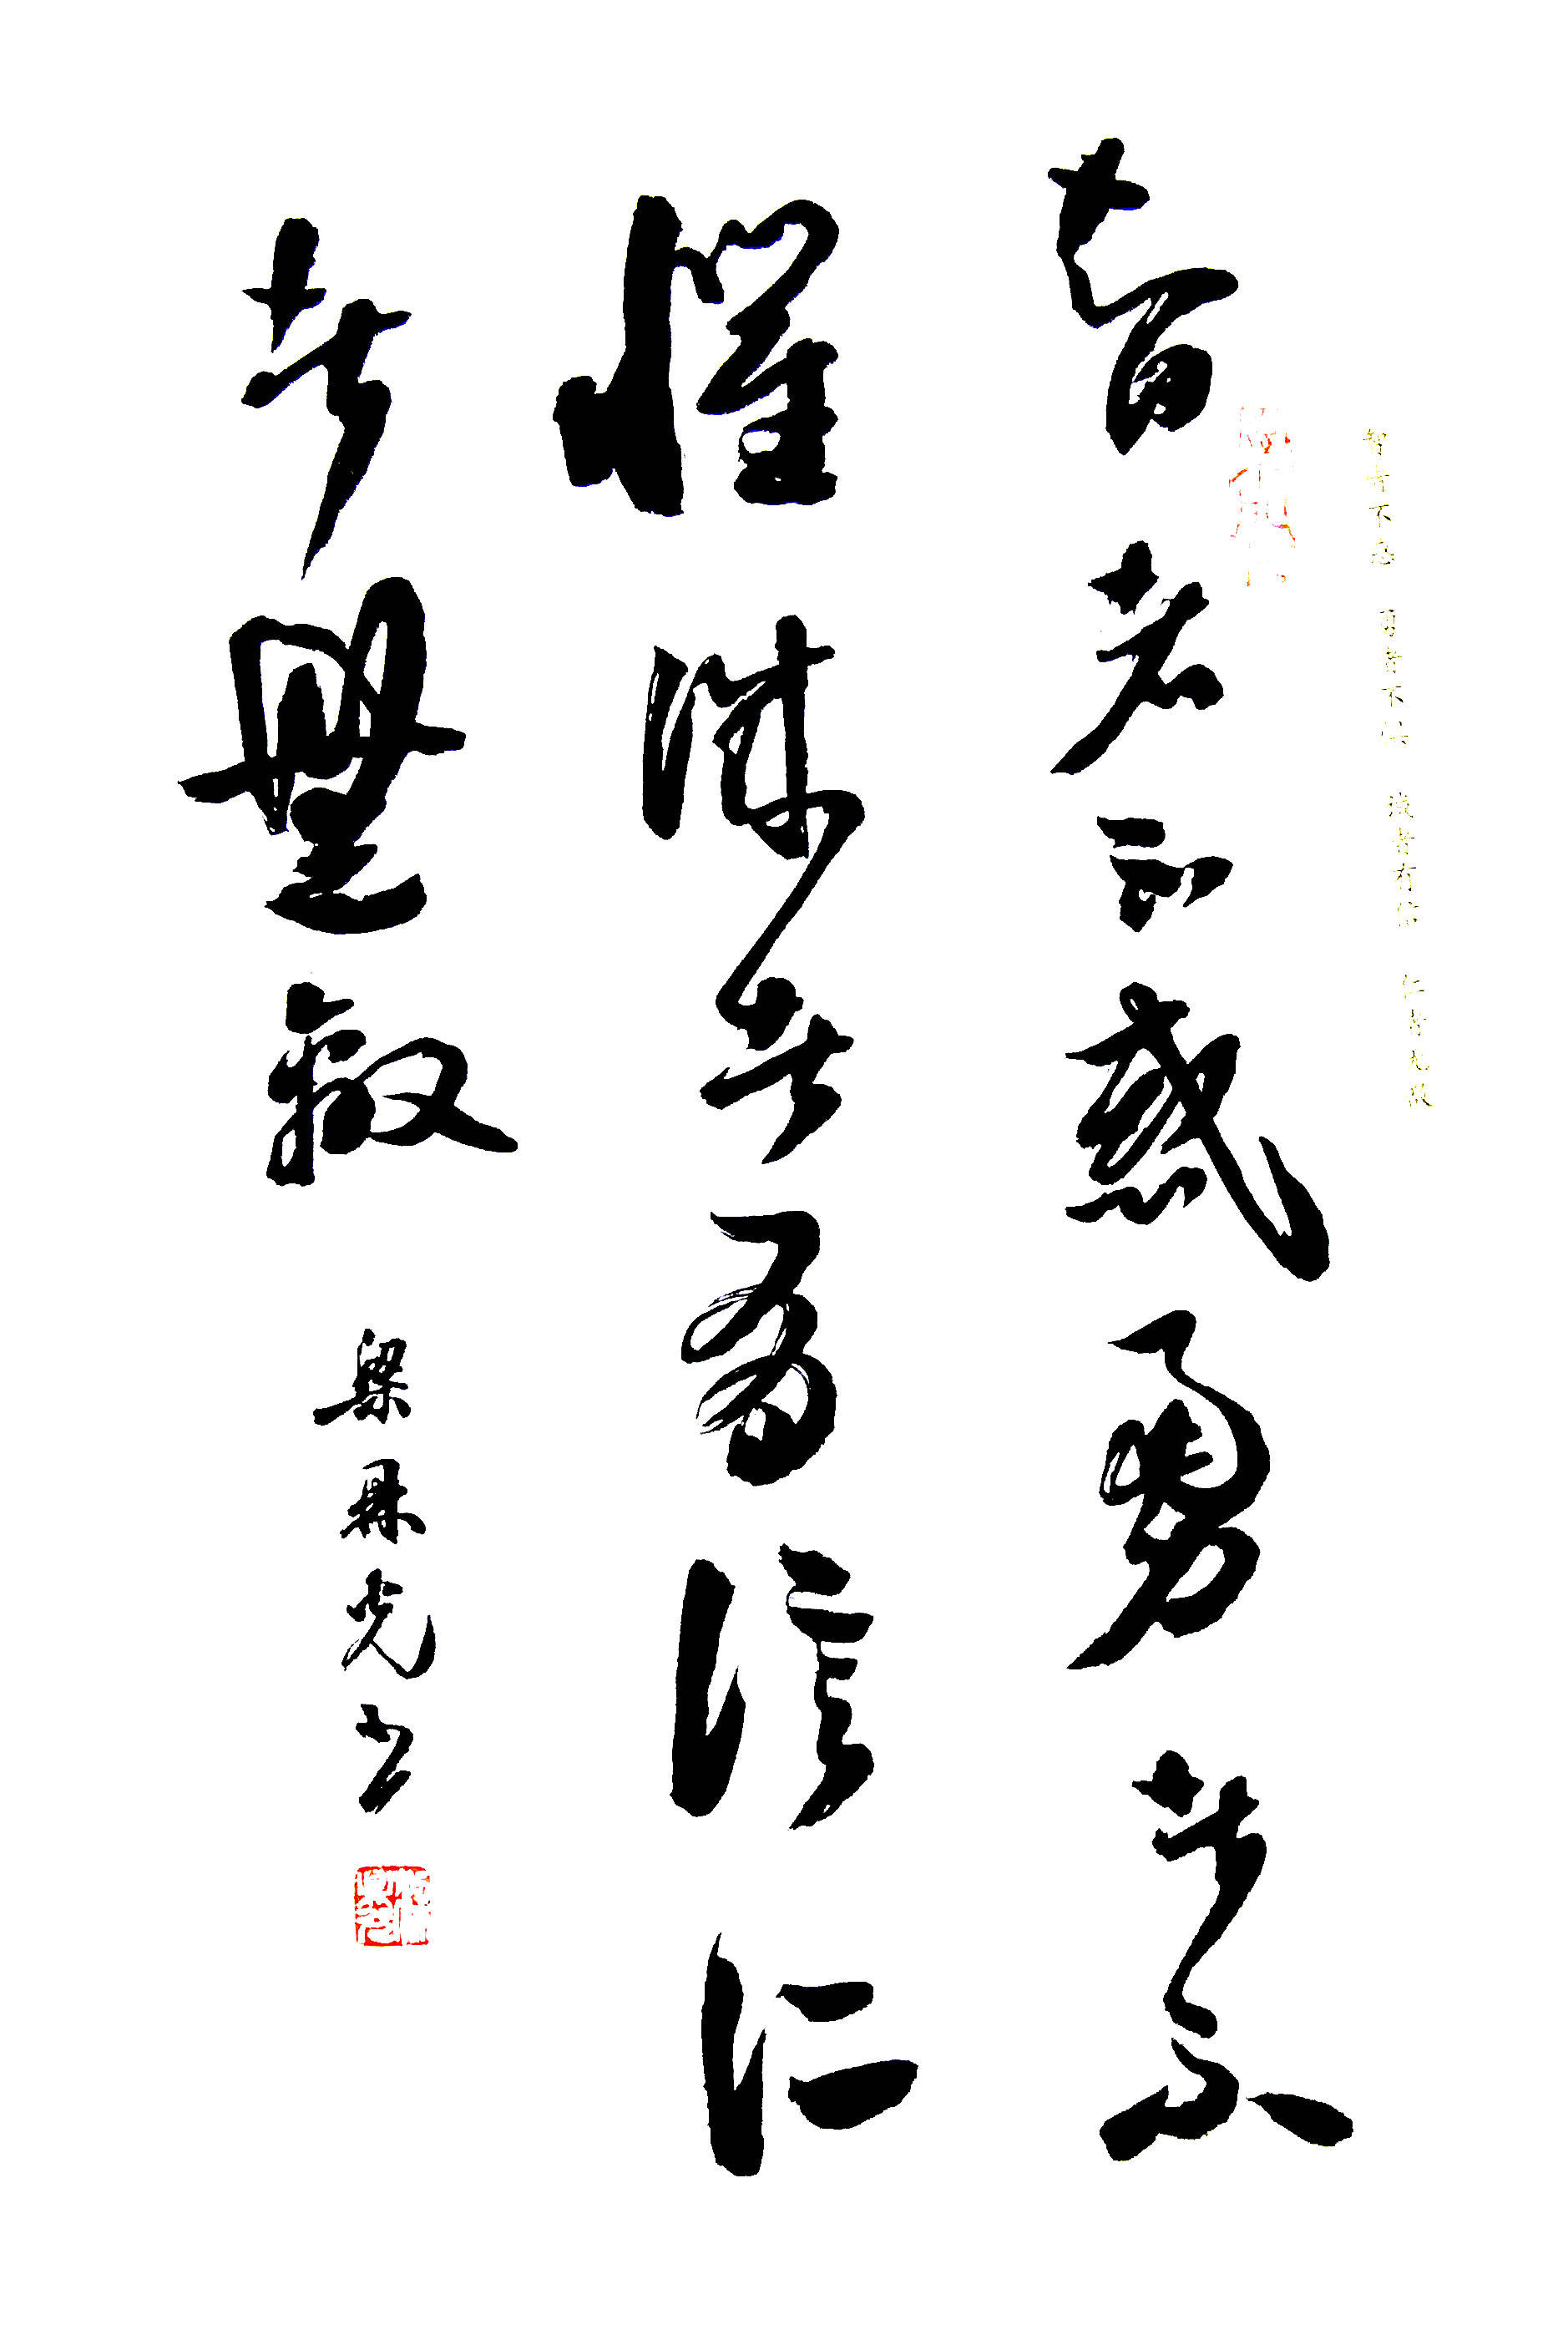 智者不惑 勇者不惧 诚者有信 仁者无敌
智者不惑勇者不
懼诚者有信仁
者無敵
梁鼎光书